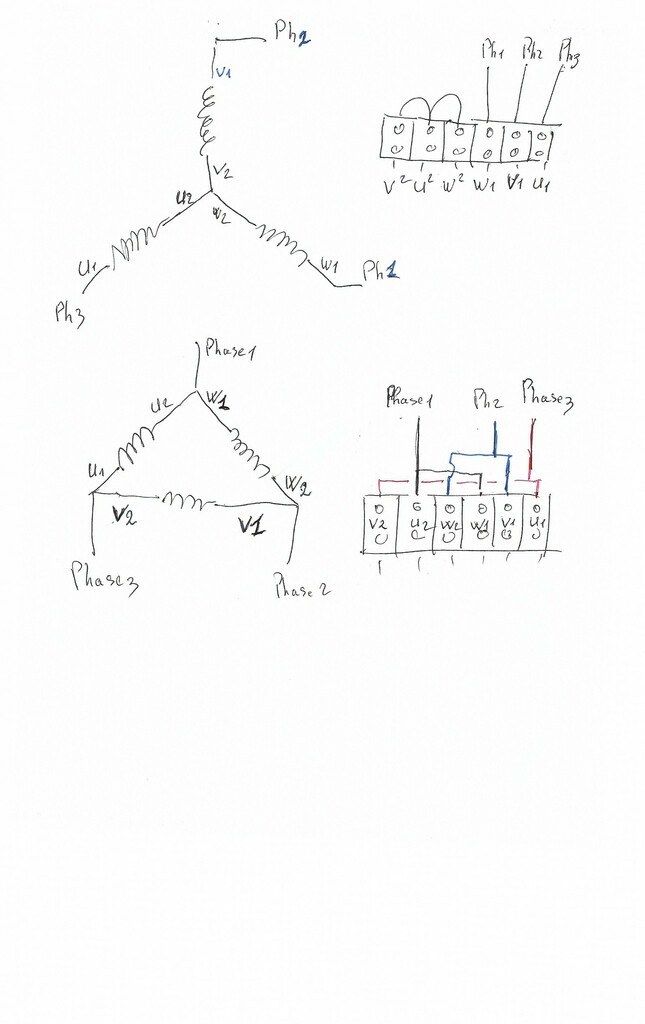 Ph2
V1
V2
U2
W2
U1
Ph3
W1
Ph1
Ph1 Ph2 Ph3
V2 U2 W2 W1 V1 U1
Phase1
U2 W1
U1
W2
V2 V1
Phase3
Phase2
Phase1 Ph2 Phase3
V2 U2 W2 W1 V1 U1